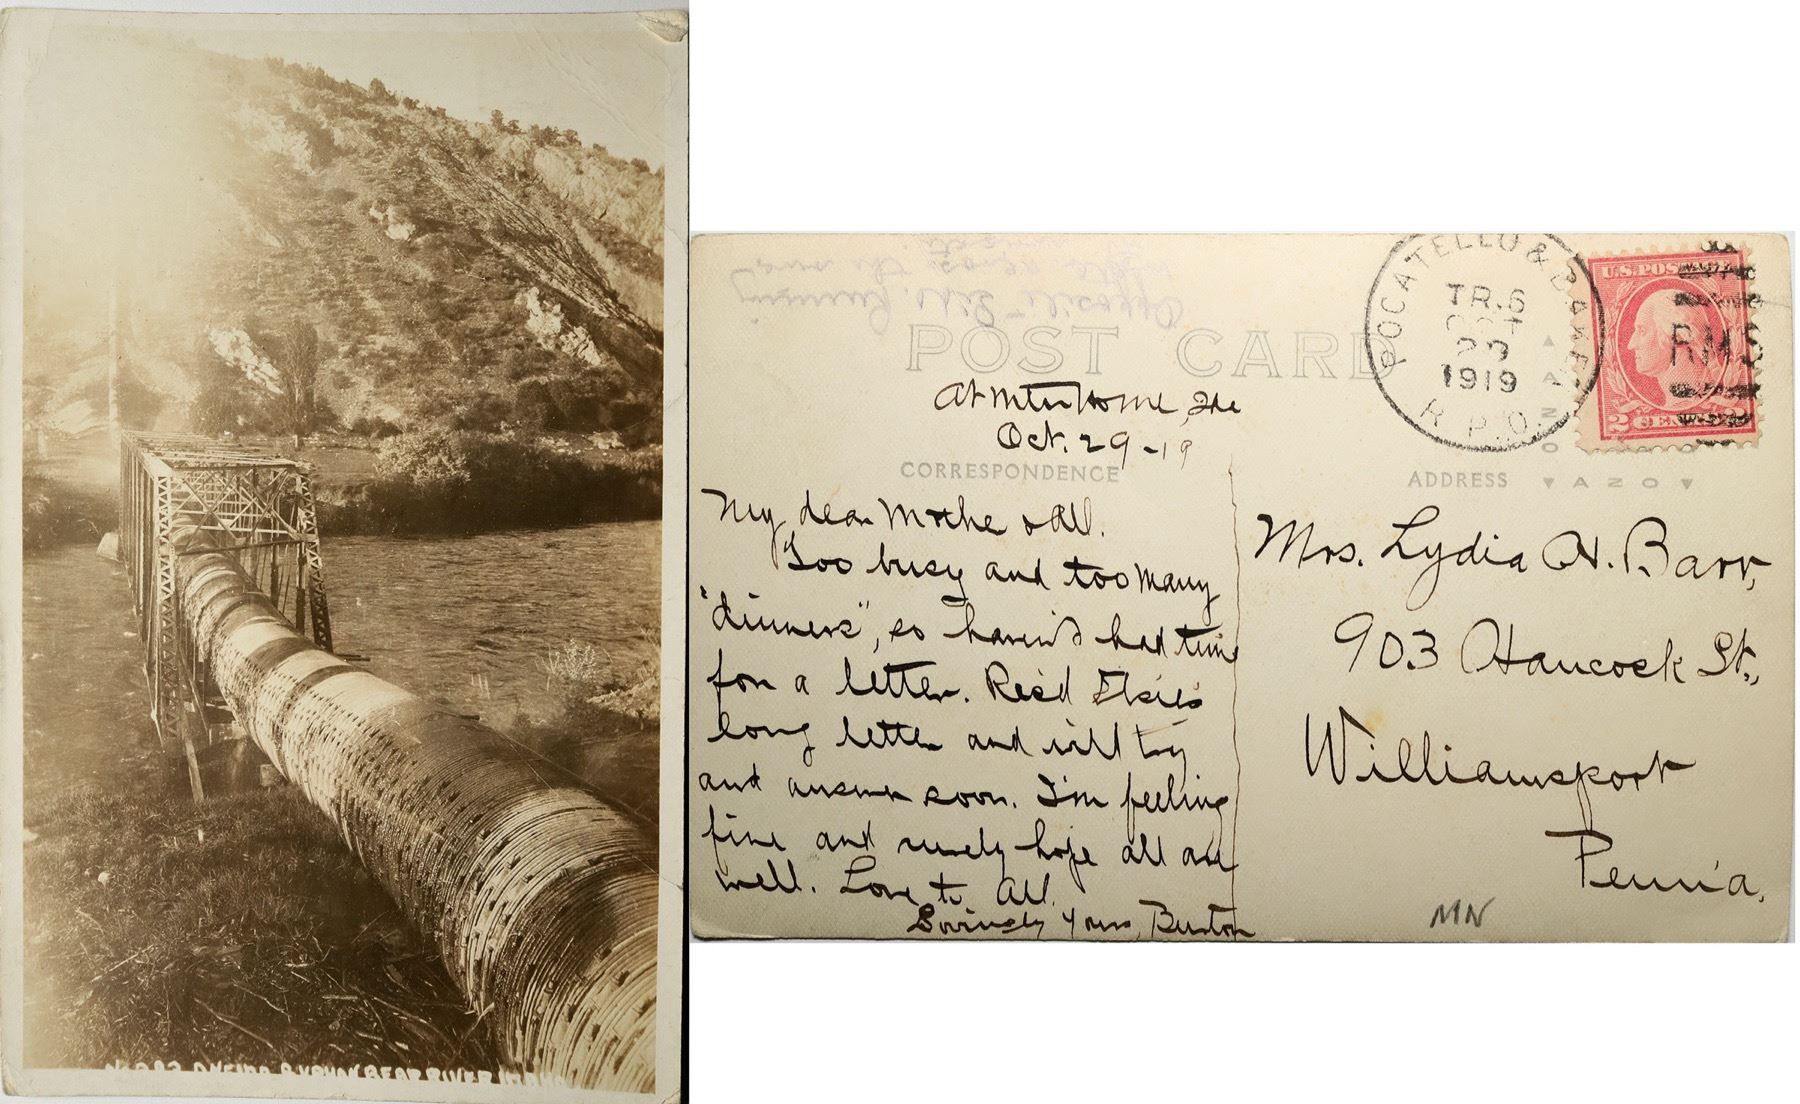 No 283 ONEIDA CANYON BEAR RIVER IDAHO
POST CARD
POCATELLO &
TR. 6
OCT
29
1919
R.P.O.
U.S. POSTAGE
2 CENTS 2
RMS
At Mtn Home, Ida
Oct. 29 - 19
CORRESPONDENCE
My dear Mother & All.
Too busy and too many
"dinners", so haven't had time
for a letter. Rec'd Elsie's
long letter and will try
and answer soon. I'm feeling
fine and surely hope all are
well. Love to All.
Lovingly Yours, Burton
ADDRESS
AZO
Mrs. Lydia H. Barr,
903 Hancock St.,
Williamsport
Penn'a.
MN